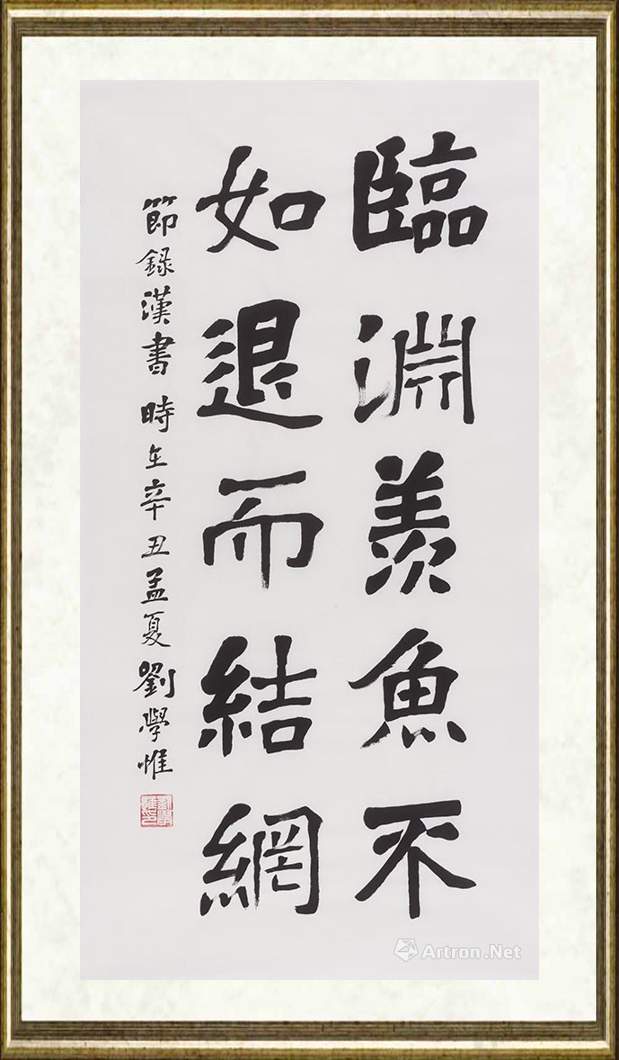 臨淵羡魚不
如退而結網
節錄漢書時在辛丑孟夏劉學惟
Artron.Net